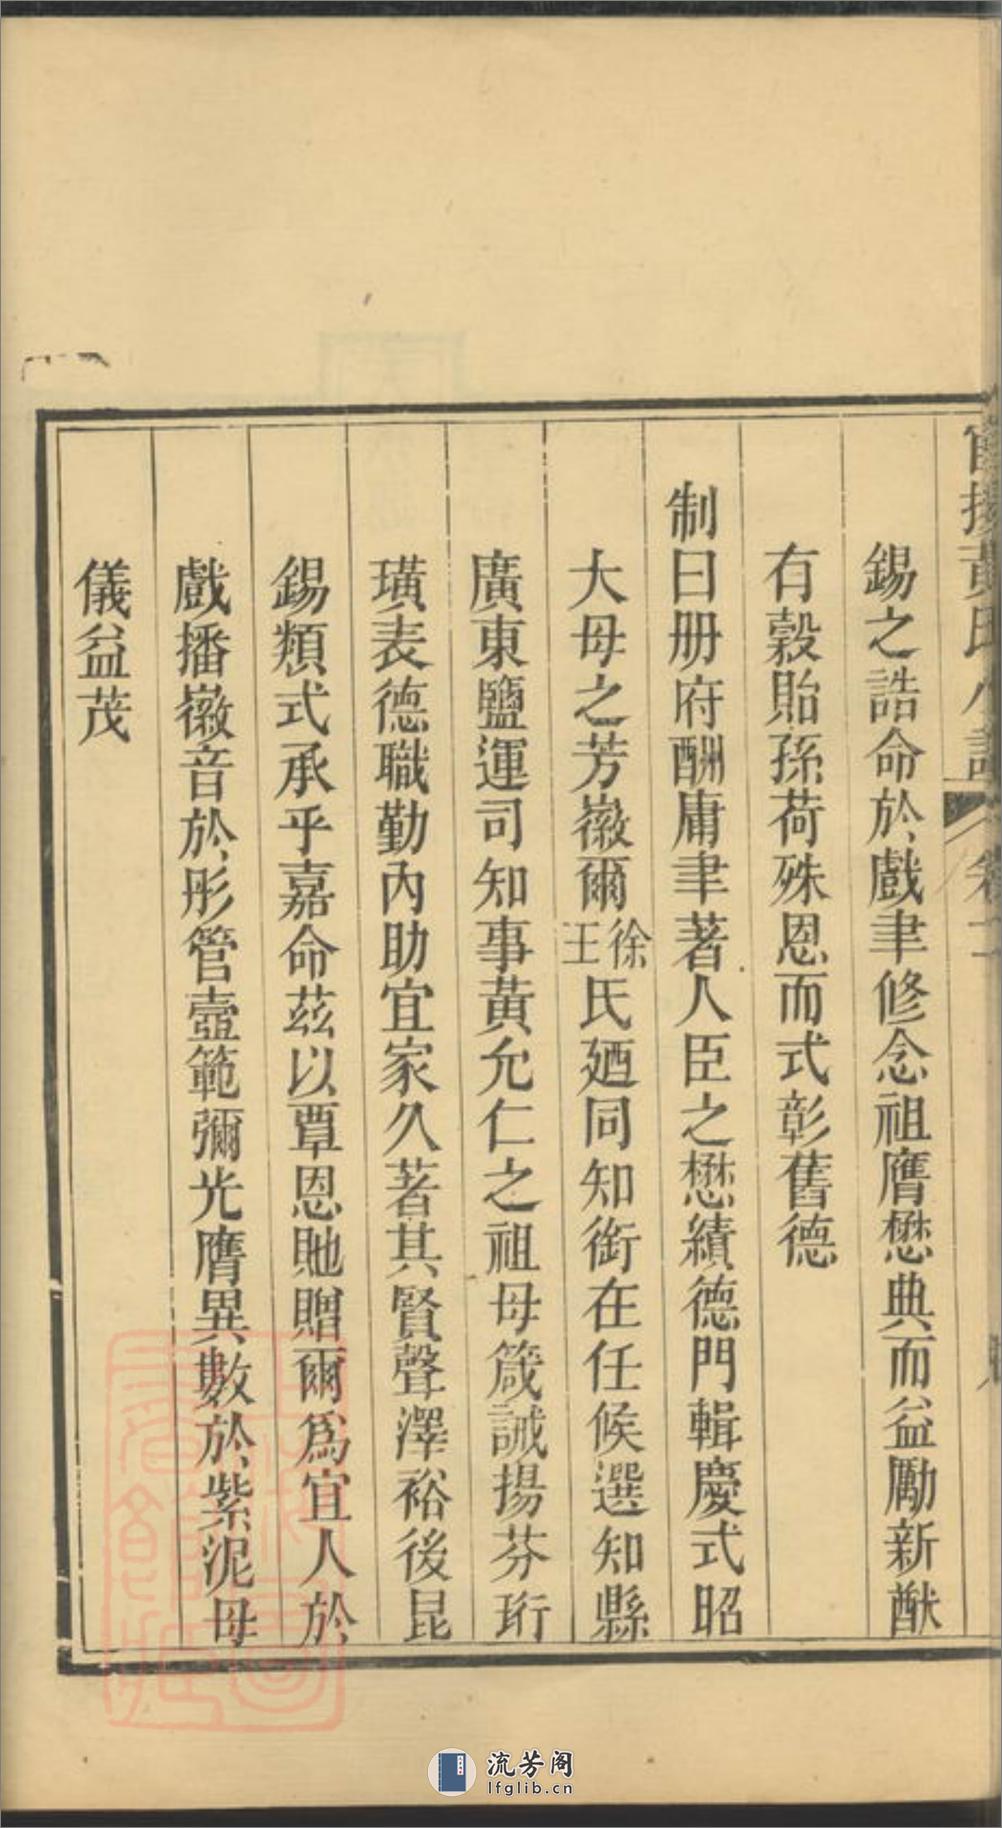 錫之誥命於戲聿修念祖膺懋典而益勵新猷
有穀貽孫荷殊恩而式彰舊德
制曰册府酬庸聿著人臣之懋績德門輯慶式昭
大母之芳徽爾徐王氏廼同知銜在任候選知縣
廣東鹽運司知事黃允仁之祖母箴誡揚芬珩
璜表德職勤內助宜家久著其賢聲澤裕後昆
錫類式承乎嘉命茲以覃恩貤贈爾爲宜人於
戲播徽音於彤管壼範彌光膺異數於紫泥母
儀益茂
流芳阁
lfglib.cn